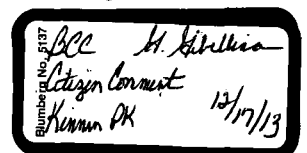 Blumberg No. 5137
BCC H. Gibellina
Citizen Comment
Kinnin PK 12/17/13